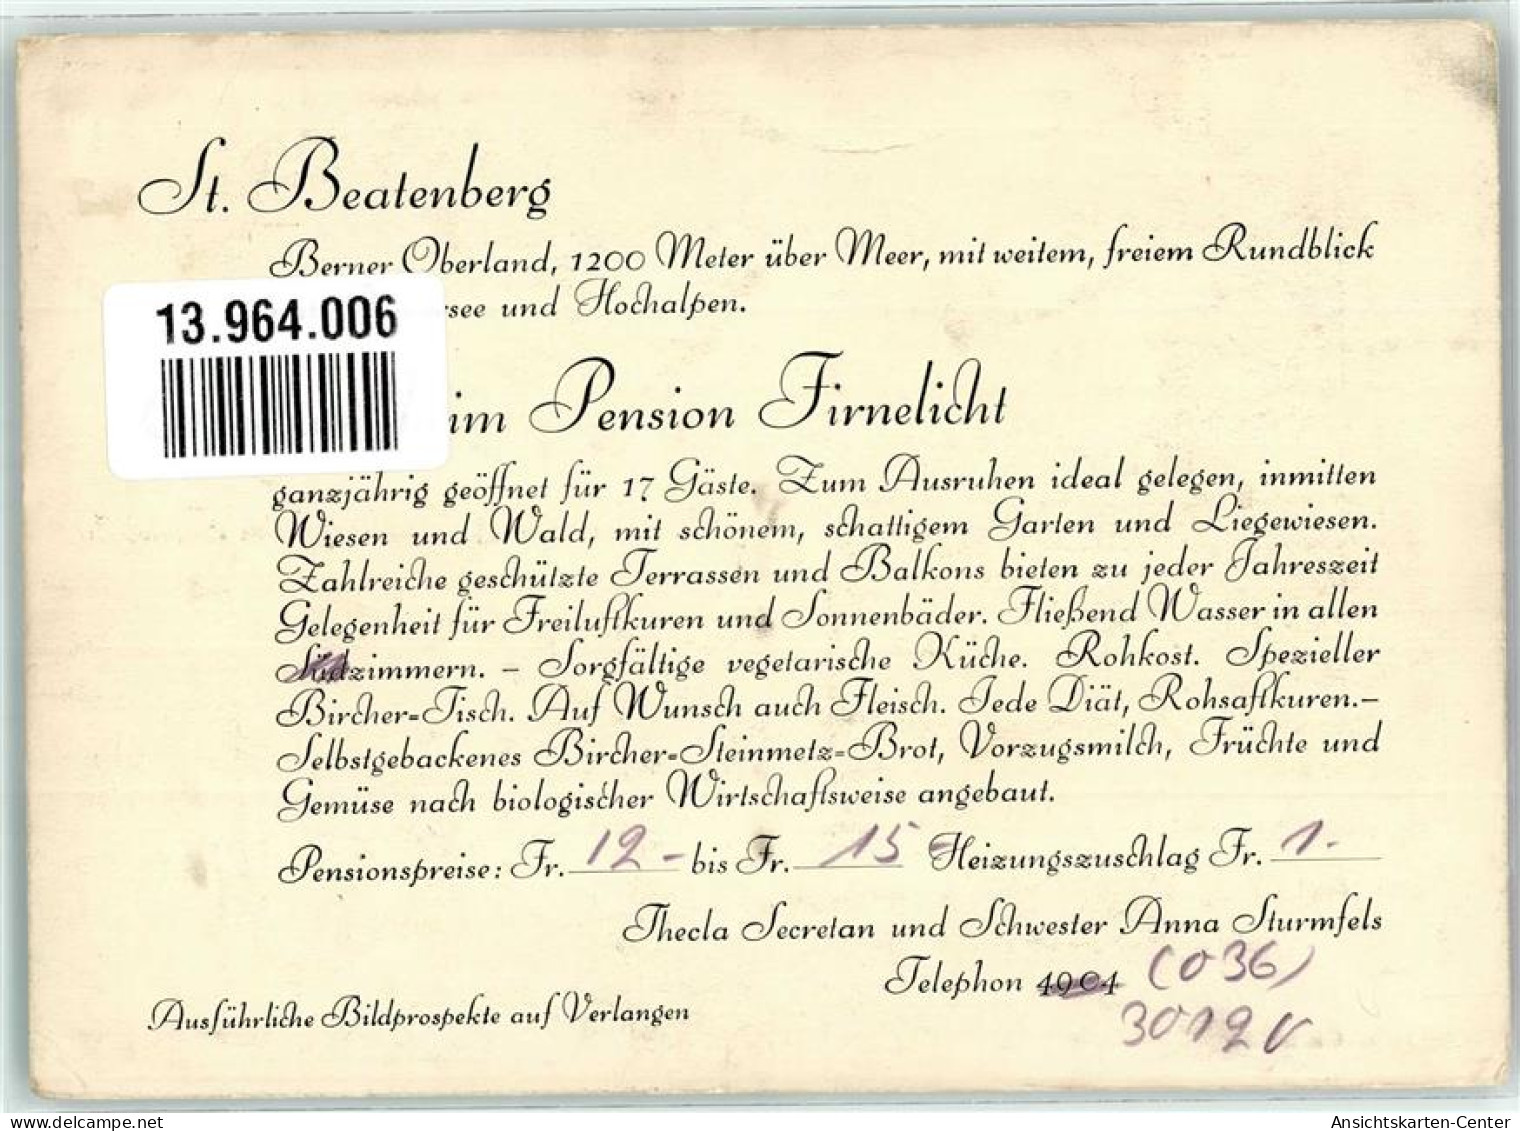 St. Beatenberg
Berner Oberland, 1200 Meter über Meer, mit weitem, freiem Rundblick
rsee und Hochalpen.
13.964.006
im Pension Firnelicht
ganzjährig geöffnet für 17 Gäste. Zum Ausruhen ideal gelegen, inmitten
Wiesen und Wald, mit schönem, schattigem Garten und Liegewiesen.
Zahlreiche geschützte Terrassen und Balkons bieten zu jeder Jahreszeit
Gelegenheit für Freiluftkuren und Sonnenbäder. Fließend Wasser in allen
Südzimmern. – Sorgfältige vegetarische Küche. Rohkost. Spezieller
Bircher=Tisch. Auf Wunsch auch Fleisch. Jede Diät, Rohsaftkuren.–
Selbstgebackenes Bircher=Steinmetz=Brot, Vorzugsmilch, Früchte und
Gemüse nach biologischer Wirtschaftsweise angebaut.
Pensionspreise: Fr. 12 - bis Fr. 15 Heizungszuschlag Fr. 1.-
Thecla Secretan und Schwester Anna Sturmfels
Telephon 4904 (036)
Ausführliche Bildprospekte auf Verlangen
www.delcampe.net
Ansichtskarten-Center